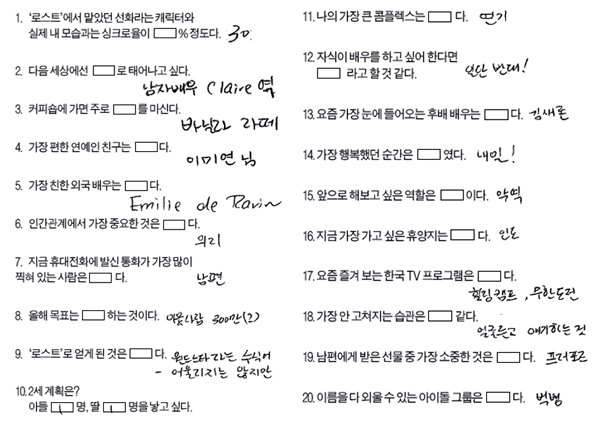 1. '로스트'에서 맡았던 선화라는 캐릭터와
실제 내 모습과는 싱크로율이 % 정도다. 30
2. 다음 세상에선 로 태어나고 싶다.
남자배우 Claire 역
3. 커피숍에 가면 주로 를 마신다.
바닐라 라떼
4. 가장 편한 연예인 친구는 다.
이미연 님
5. 가장 친한 외국 배우는 다.
Emilie de Ravin
6. 인간관계에서 가장 중요한 것은 다.
의리
7. 지금 휴대전화에 발신 통화가 가장 많이
찍혀 있는 사람은 다. 남편
8. 올해 목표는 하는 것이다. 이웃사람 300만(2)
9. '로스트'로 얻게 된 것은 다. 월드스타라는 수식어
- 어울리지는 않지만
10. 2세 계획은?
아들 1 명, 딸 1 명을 낳고 싶다.
11. 나의 가장 큰 콤플렉스는 다. 연기
12. 자식이 배우를 하고 싶어 한다면
라고 할 것 같다. 일단 반대!
13. 요즘 가장 눈에 들어오는 후배 배우는 다. 김새론
14. 가장 행복했던 순간은 였다. 내일!
15. 앞으로 해보고 싶은 역할은 이다. 악역
16. 지금 가장 가고 싶은 휴양지는 다. 인도
17. 요즘 즐겨 보는 한국 TV 프로그램은 다.
힐링캠프, 무한도전
18. 가장 안 고쳐지는 습관은 같다.
얼굴 듣고 얘기하는 것
19. 남편에게 받은 선물 중 가장 소중한 것은 다. 프러포즈
20. 이름을 다 외울 수 있는 아이돌 그룹은 다. 빅뱅